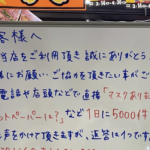 客様へ
当店をご利用頂き誠にありがとう
にお願い、ご協力を頂きたい事がご
電話や店頭などで直接「マスクありま
ットペーパーは?」など1日に5000件
声をかけて頂きますが、返答は1つです